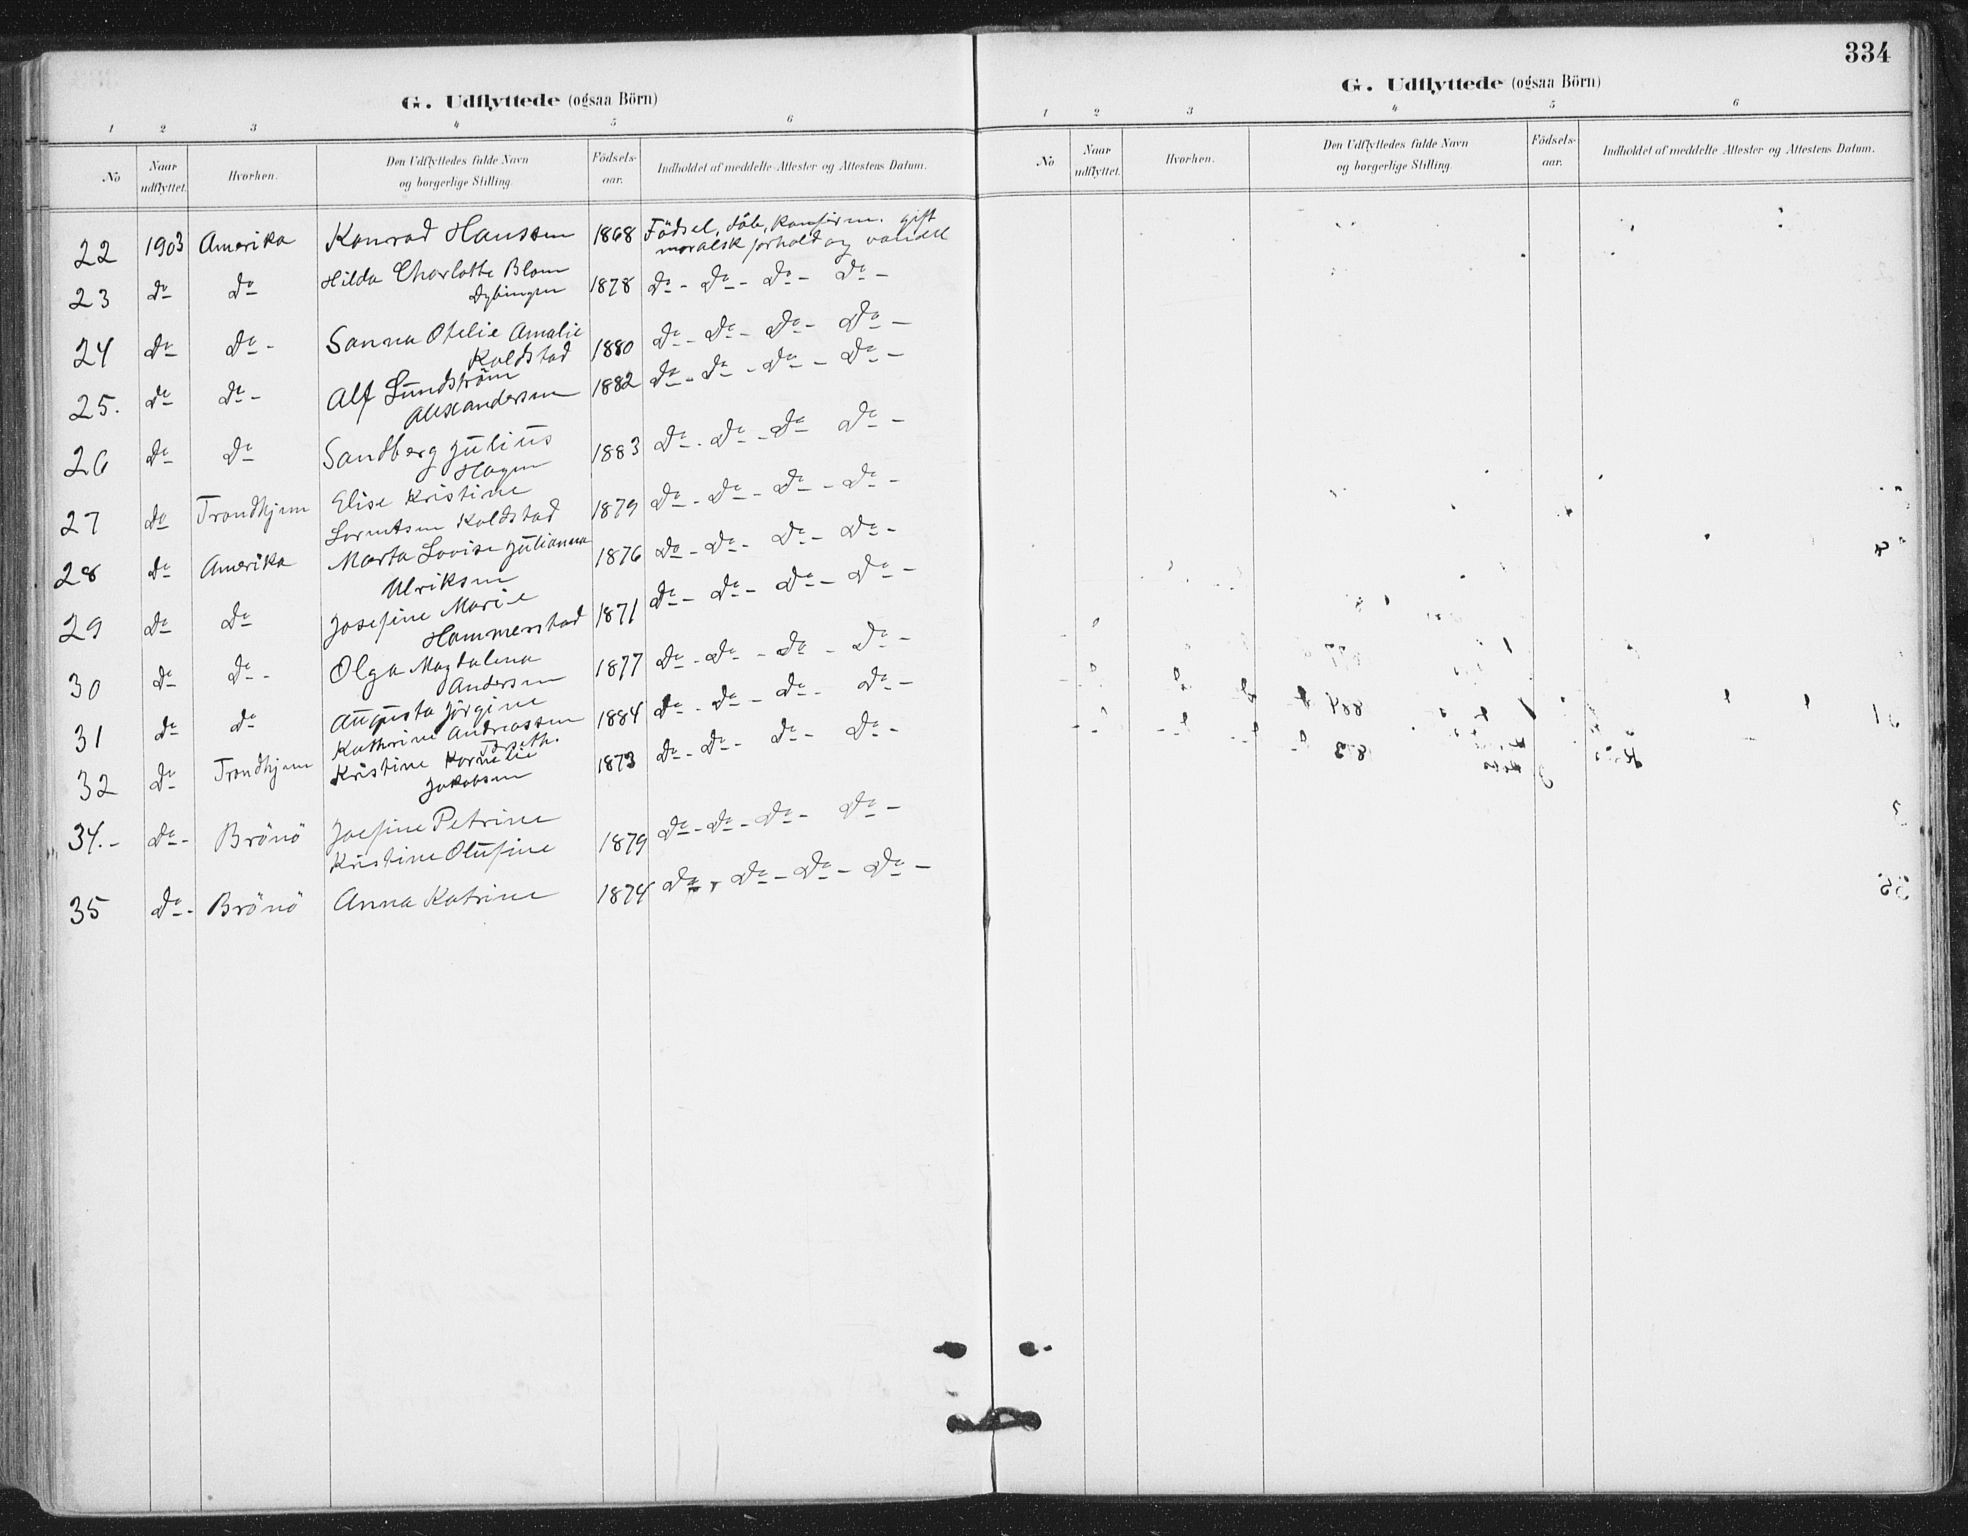 334
G. Udflyttede (ogsaa Börn)
1 2 3 4 5 6
No Naar udflyttet. Hvorhen. Den Udflyttedes fulde Navn og borgerlige Stilling. Födsels-aar. Indholdet af meddelte Attester og Attestens Datum.
22 1903 Amerika Konrad Hanssen 1868 Födsel, dåb, konfirm. gift
moralsk forhold og vandel
23 do do Hilda Charlotte Blom 1878 do - do - do - do -
Dybingen
24 do do - Sanna Otelie Amalie 1880 do - do - do - do -
Koldstad
25. do do - Alf Lundström 1882 do - do - do - do -
Alexandersen
26 do do Sandberg Julius 1883 do - do - do do -
Hagen
27 do Trondhjem Elise Kristine 1879 do - do - do - do -
Lorentsen Koldstad
28 do Amerika Marta Lovise Julianna 1876 do - do - do - do -
Ulriksen
29 do do Josefine Marie 1871 do - do - do - do -
Hammerstad
30 do do - Olga Magdalena 1877 do - do - do - do -
Andersen
31 do do Augusta Jörgine 1884 do - do - do - do -
Kathrine Andreassen
32 do Trondhjem Kristine Kornelie 1873 do - do - do - do -
Jakobsen
34. - do - Brönö Josefine Petrine 1879 do - do - do - do -
Kristine Olufine
35 do - Brönö Anna Katrine 1874 do do - do - do -
G. Udflyttede (ogsaa Börn)
1 2 3 4 5 6
No Naar udflyttet. Hvorhen. Den Udflyttedes fulde Navn og borgerlige Stilling. Födsels-aar. Indholdet af meddelte Attester og Attestens Datum.